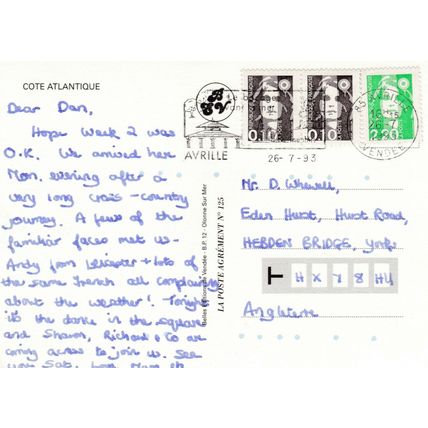 COTE ATLANTIQUE
Dear Dan,
Hope Week 2 was
O.K. We arrived here
Mon. evening after a
very long cross-country
journey. A few of the
familiar faces met us -
Andy from Leicester + lots of
the same French all complaining
about the weather! Tonight
it's the dance in the square
and Sharon, Richard & Co are
coming across to join us. See
you Sat.
AVRILLE
26-7-93
0,10
0,10
85 AVRILLE
26-7
1993
VENDEE
Belles Editions de Vendée - B.P. 12 - Olonne Sur Mer
LA POSTE AGRÉMENT N° 125
Mr. D. Whewell,
Eden Hurst, Hurst Road,
HEBDEN BRIDGE, Yorks.
HX7 8HU
Angleterre